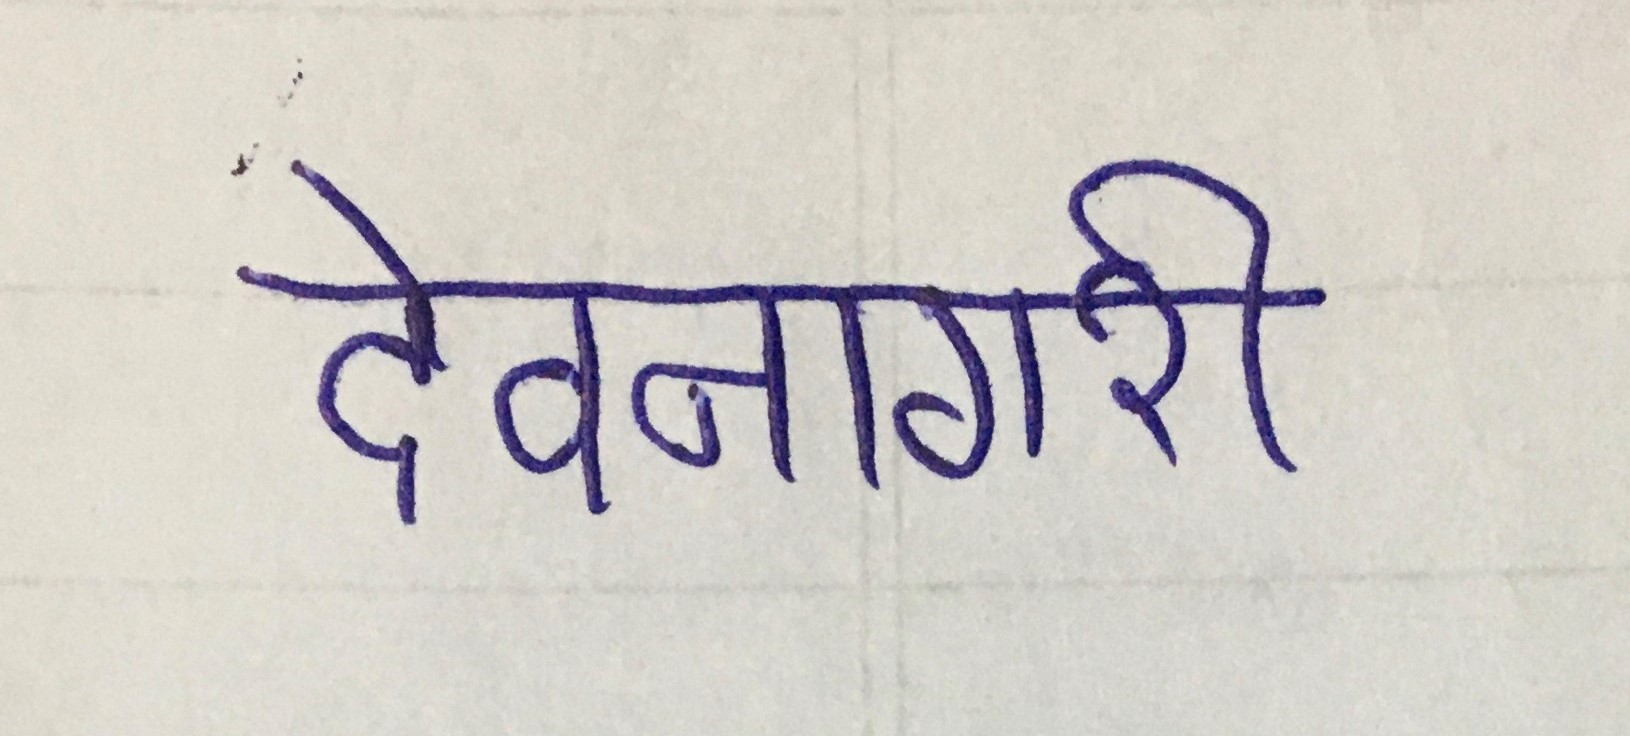 देवनागरी